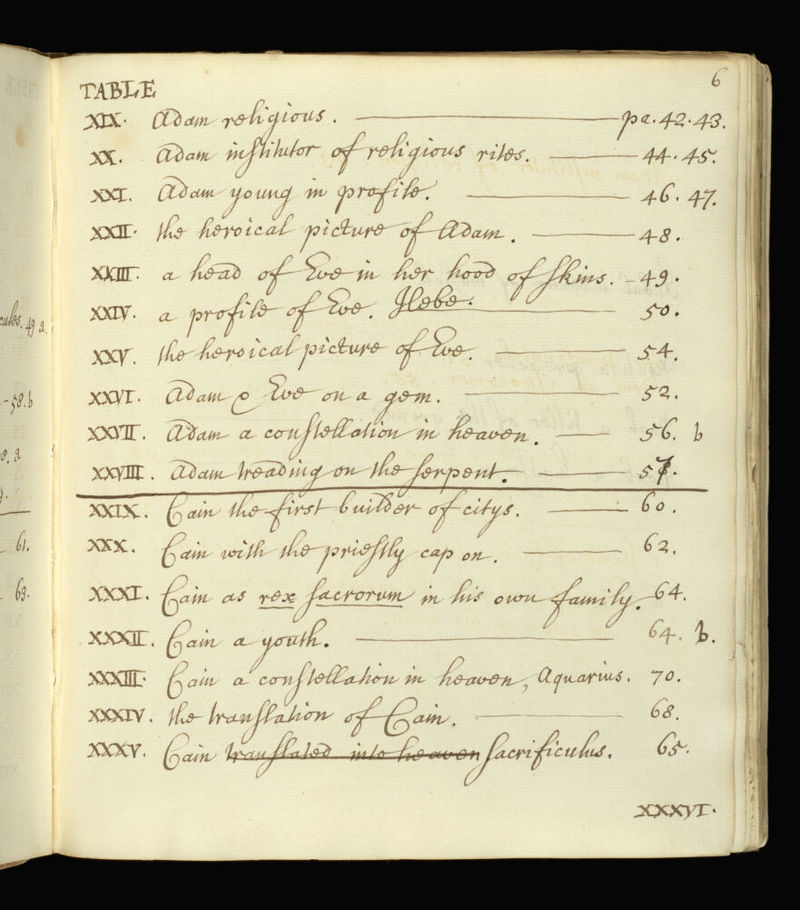 6
TABLE
XIX. Adam religious. pa. 42. 43.
XX. Adam institutor of religious rites. 44. 45.
XXI. Adam young in profile. 46. 47.
XXII. the heroical picture of Adam. 48.
XXIII. a head of Eve in her hood of skins. 49.
XXIV. a profile of Eve. Hebe. 50.
XXV. the heroical picture of Eve. 54.
XXVI. Adam & Eve on a gem. 52.
XXVII. Adam a constellation in heaven. 56. b
XXVIII. Adam treading on the serpent. 57.
XXIX. Cain the first builder of citys. 60.
XXX. Cain with the priestly cap on. 62.
XXXI. Cain as rex sacrorum in his own family. 64.
XXXII. Cain a youth. 64. b.
XXXIII. Cain a constellation in heaven, Aquarius. 70.
XXXIV. the translation of Cain. 68.
XXXV. Cain translated into heaven sacrificulus. 65.
XXXVI.
49 a.
58. b
61.
63.